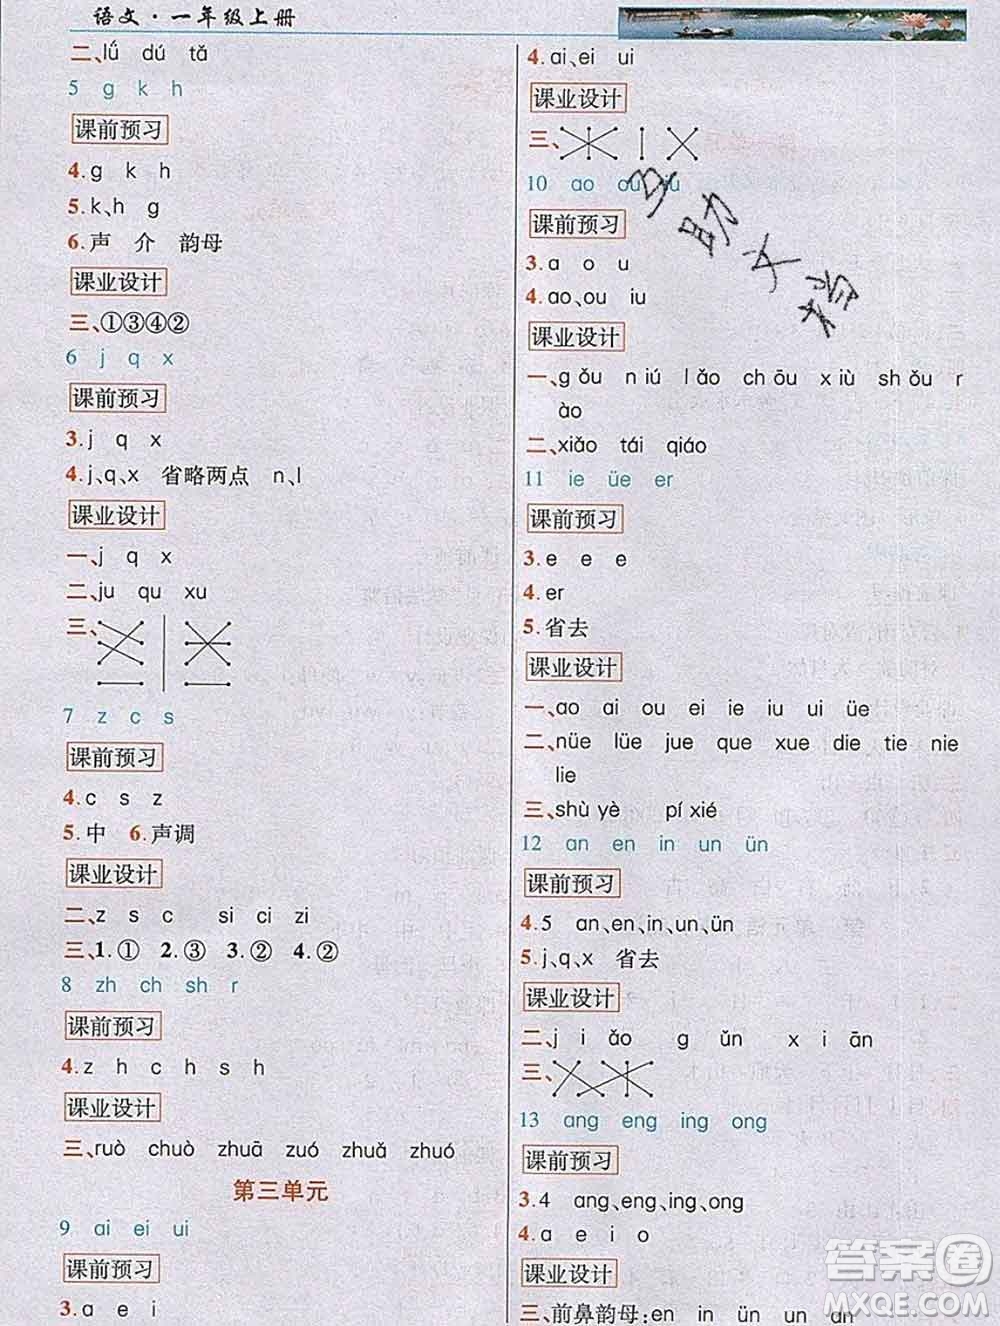 语文·一年级上册
二、lǘ dú tǎ
5 g k h
课前预习
4.g k h
5.k、h g
6.声 介 韵母
课业设计
三、①③④②
6 j q x
课前预习
3.j q x
4.j、q、x 省略两点 n、l
课业设计
一、j q x
二、ju qu xu
三、
7 z c s
课前预习
4.c s z
5.中 6.声调
课业设计
二、z s c si ci zi
三、1.① 2.③ 3.② 4.②
8 zh ch sh r
课前预习
4.z h c h s h
课业设计
三、ruò chuò zhuā zuó zhuǎ zhuó
第三单元
9 ai ei ui
课前预习
3.a e i
4.ai、ei ui
课业设计
三、
10 ao ou iu
课前预习
3.a o u
4.ao、ou iu
课业设计
一、g ǒu n iú l ǎo ch ōu x iù sh ǒu r
ào
二、xiǎo tái qiáo
11 ie üe er
课前预习
3.e e e
4.er
5.省去
课业设计
一、ao ai ou ei ie iu ui üe
二、nüe lüe jue que xue die tie nie
lie
三、shù yè pí xié
12 an en in un ün
课前预习
4.5 an、en、in、un、ün
5.j、q、x 省去
课业设计
二、j i ǎo g ǔn x i ān
三、
13 ang eng ing ong
课前预习
3.4 ang、eng、ing、ong
4.a e i o
课业设计
三、前鼻韵母:en in ün un an
互助文档
答案圈
MXQE.COM